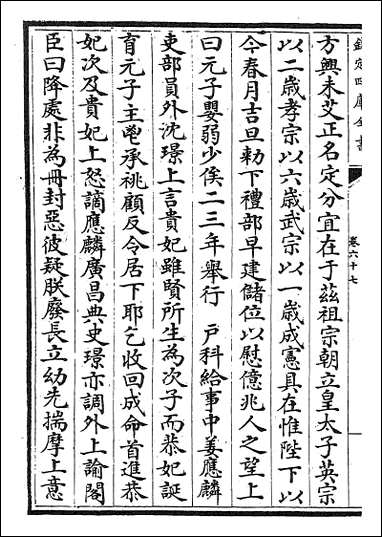 欽定四庫全書
卷六十七
方興未艾正名定分宜在于茲祖宗朝立皇太子英宗
以二歳孝宗以六歳武宗以一歳成憲具在惟陛下以
今春月吉旦勅下禮部早建儲位以慰億兆人之望上
曰元子嬰弱少俟二三年舉行　户科給事中姜應麟
吏部員外沈璟上言貴妃雖賢所生為次子而恭妃誕
育元子主鬯承祧顧反令居下耶乞收回成命首進恭
妃次及貴妃上怒謫應麟廣昌典史璟亦調外上諭閣
臣曰降處非為冊封惡彼疑朕廢長立幼先揣摩上意